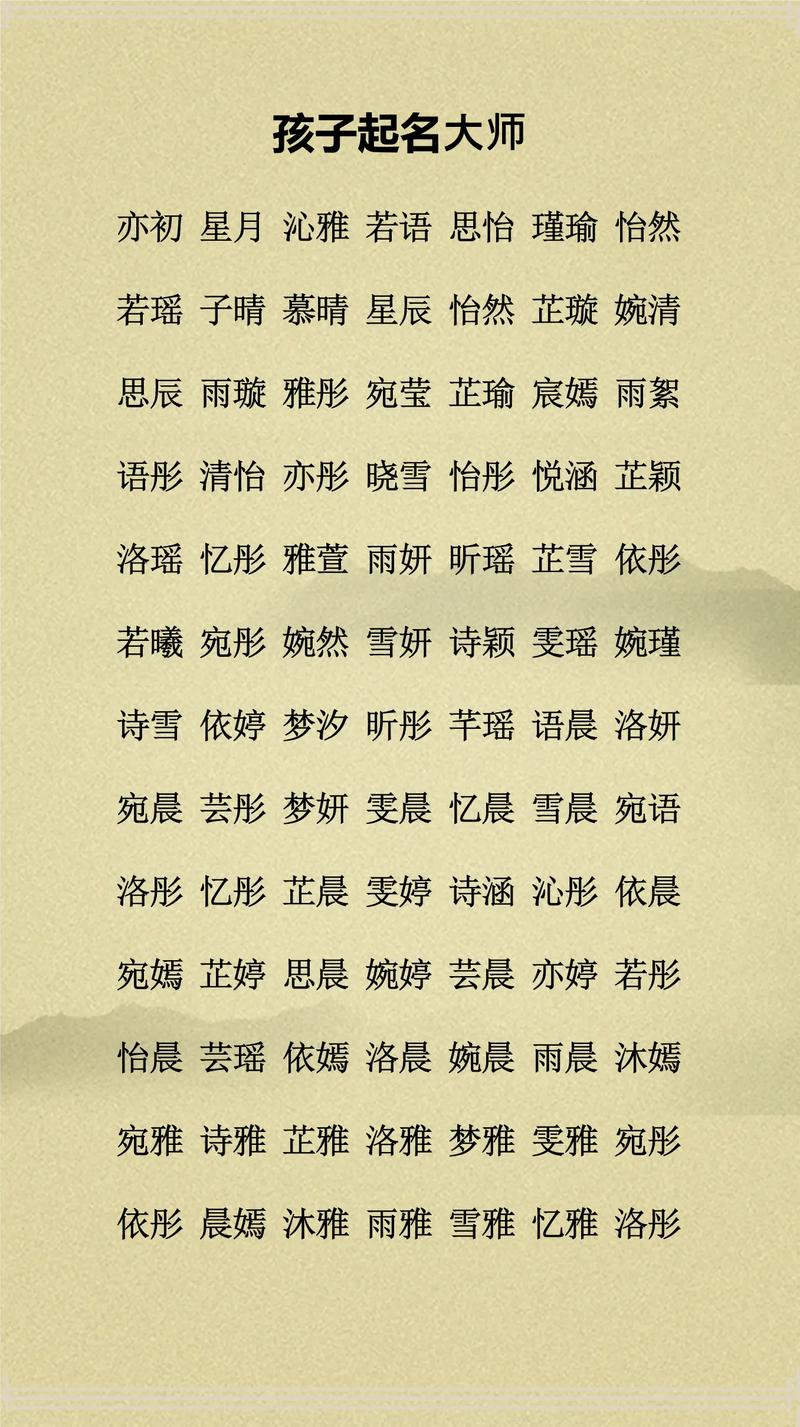 孩子起名大师
亦初 星月 沁雅 若语 思怡 瑾瑜 怡然
若瑶 子晴 慕晴 星辰 怡然 芷璇 婉清
思辰 雨璇 雅彤 宛莹 芷瑜 宸嫣 雨絮
语彤 清怡 亦彤 晓雪 怡彤 悦涵 芷颖
洛瑶 忆彤 雅萱 雨妍 昕瑶 芷雪 依彤
若曦 宛彤 婉然 雪妍 诗颖 雯瑶 婉瑾
诗雪 依婷 梦汐 昕彤 芊瑶 语晨 洛妍
宛晨 芸彤 梦妍 雯晨 忆晨 雪晨 宛语
洛彤 忆彤 芷晨 雯婷 诗涵 沁彤 依晨
宛嫣 芷婷 思晨 婉婷 芸晨 亦婷 若彤
怡晨 芸瑶 依嫣 洛晨 婉晨 雨晨 沐嫣
宛雅 诗雅 芷雅 洛雅 梦雅 雯雅 宛彤
依彤 晨嫣 沐雅 雨雅 雪雅 忆雅 洛彤